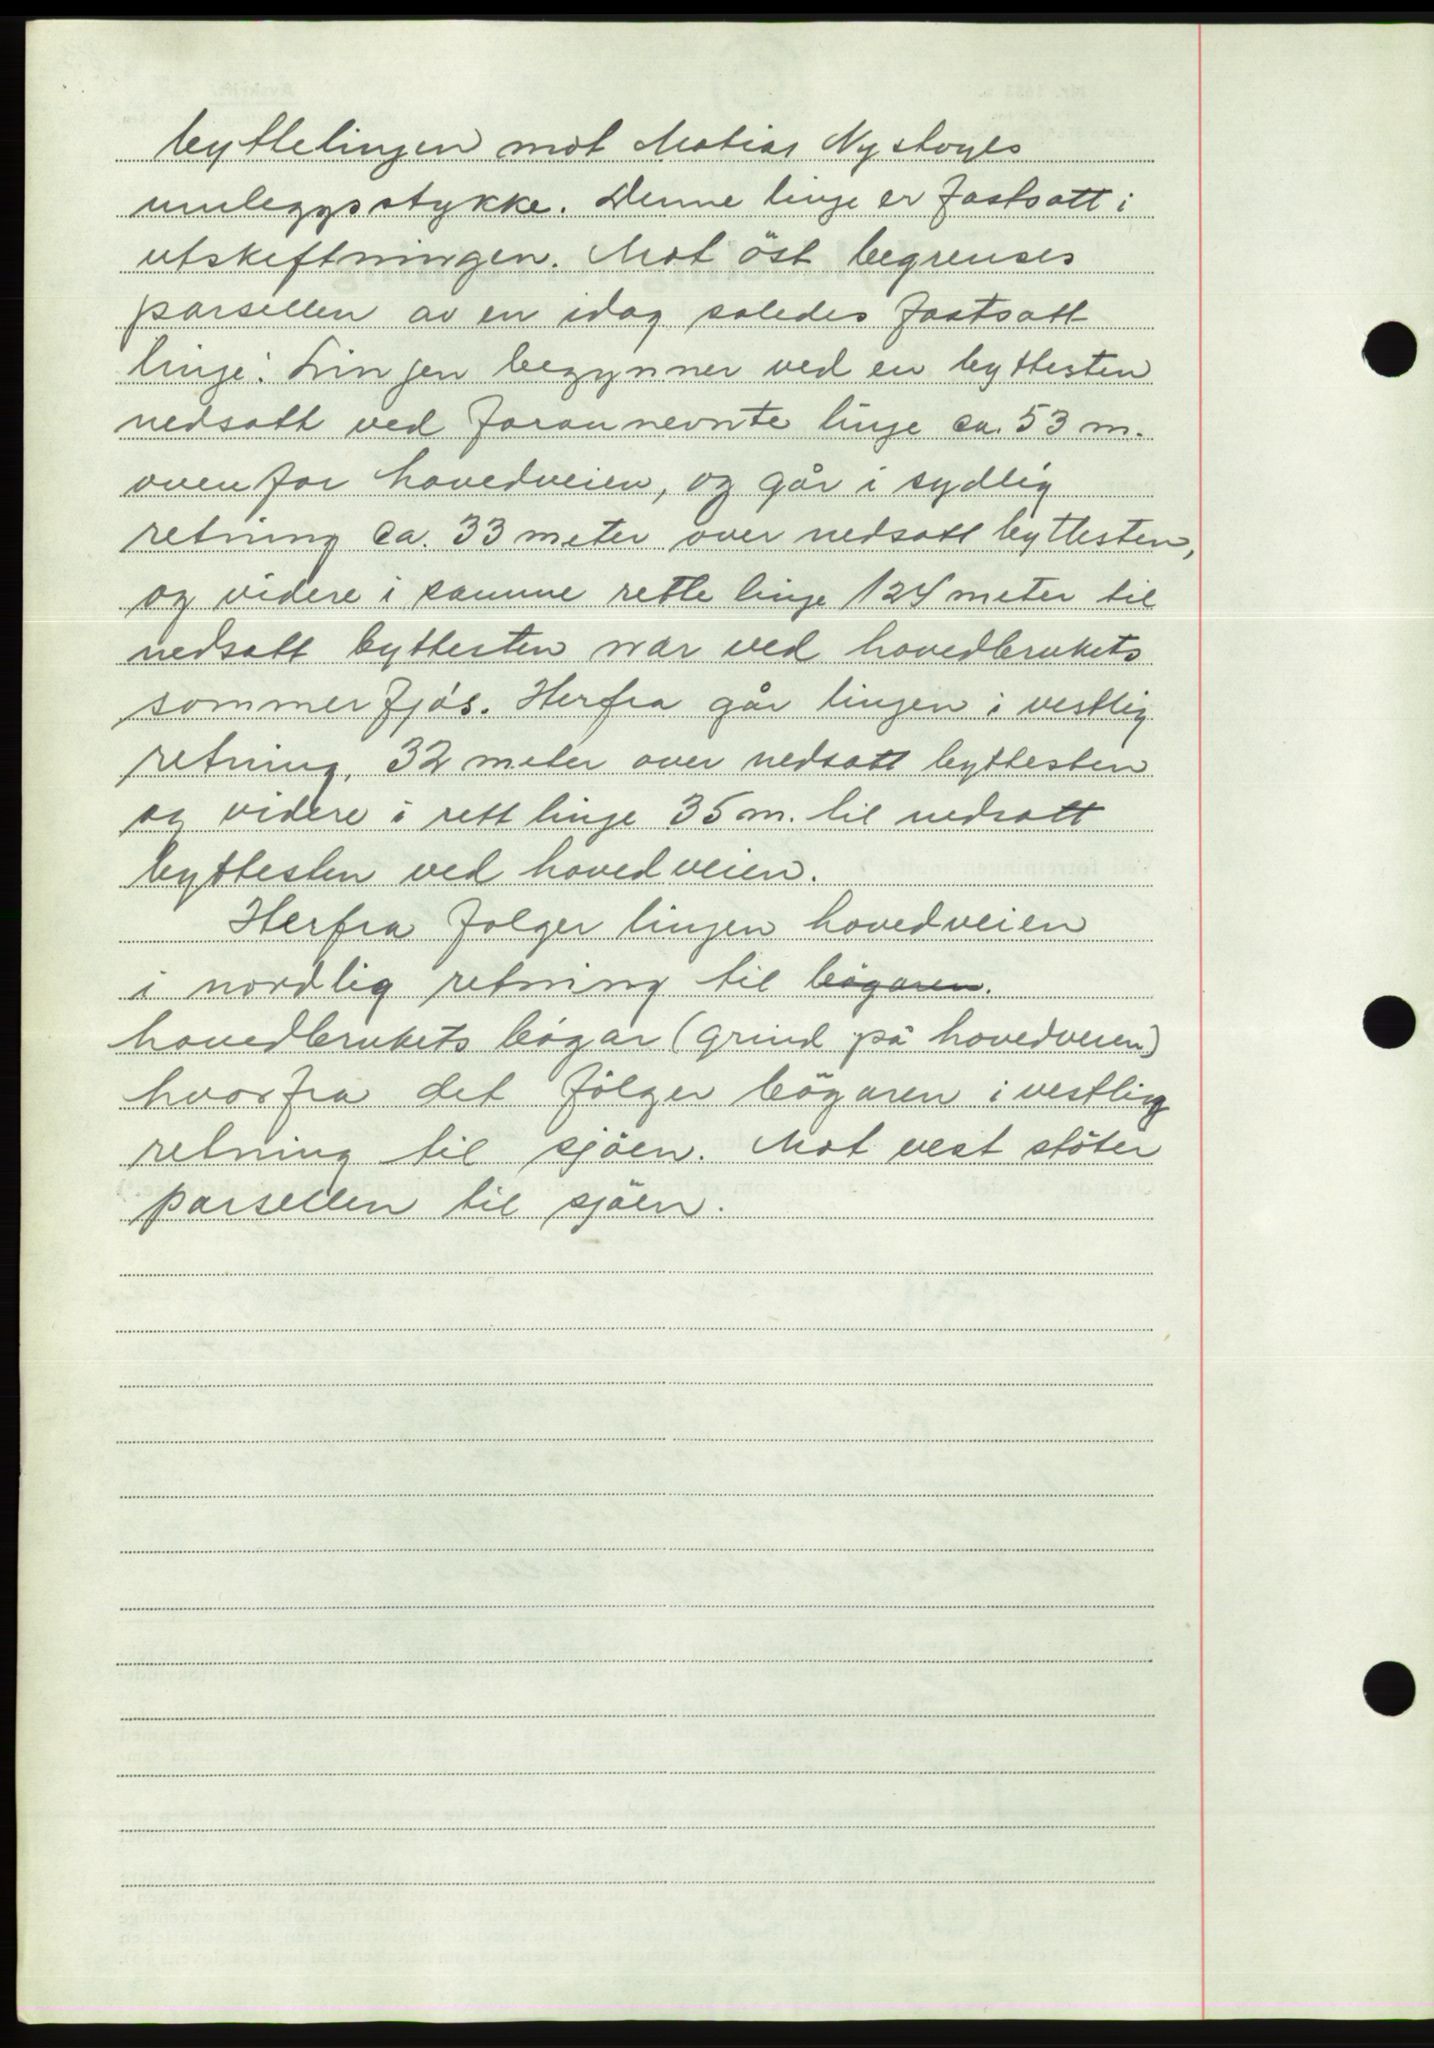 byttelinjen mot Matias Nystøyls
umleggsstykke. Denne linje er fastsatt i
utskiftningen. Mot öst begrenses
parsellen av en idag saledes fastsatt
linje: Linjen begynner ved en byttesten
nedsatt ved forannevnte linje ca. 53 m.
ovenfor hovedveien, og går i sydlig
retning ca. 33 meter over nedsatt byttesten,
og videre i samme rette linje 124 meter til
nedsatt byttesten nær ved hovedbrukets
sommerfjös. Herfra går linjen i vestlig
retning, 32 meter over nedsatt byttesten
og videre i rett linje 35 m. til nedsatt
byttesten ved hovedveien.
Herfra folger linjen hovedveien
i nordlig retning til bögaren.
hovedbrukets bögar (grind på hovedveien)
hvorfra det fölger bögaren i vestlig
retning til sjöen. Mot vest stöter
parsellen til sjöen.